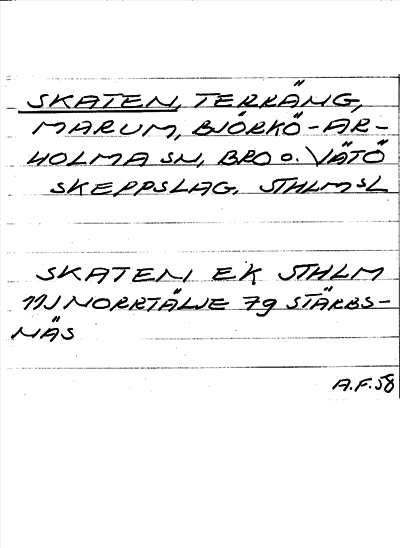 SKATEN, TERRÄNG,
MARUM, BJÖRKÖ-AR-
HOLMA SN, BRO O. VÄTÖ
SKEPPSLAG, STHLMSL
SKATEN EK STHLM
11J NORRTÄLJE 79 STÄRBS-
NÄS
A.F. 58